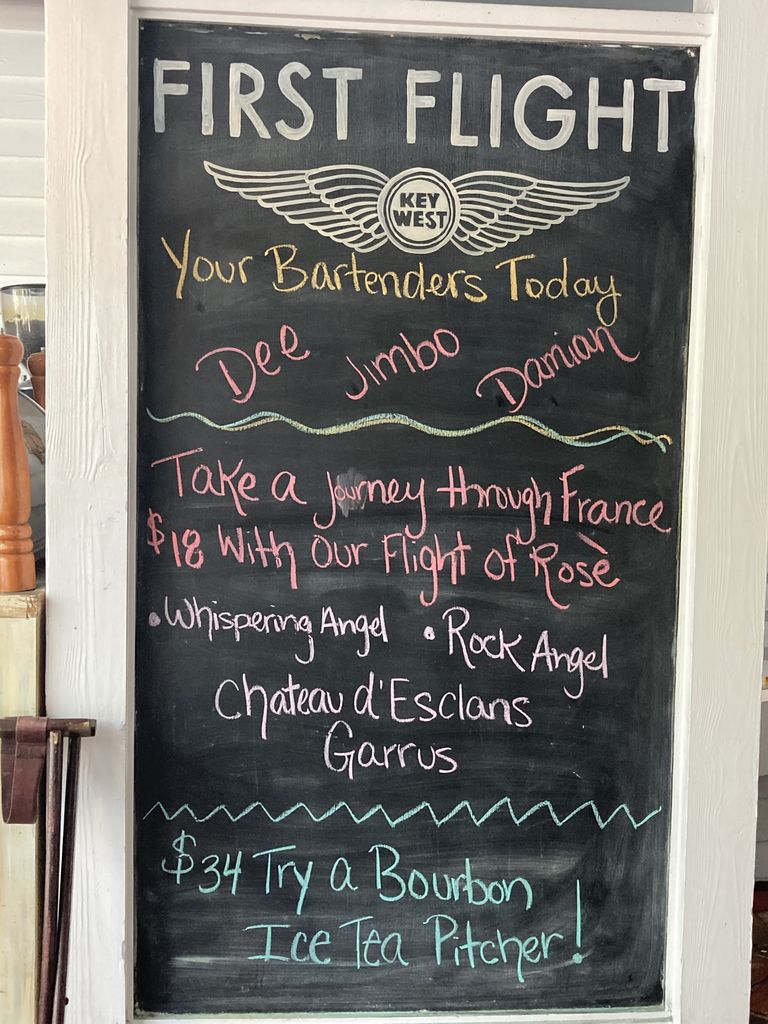 FIRST FLIGHT
KEY
WEST
Your Bartenders Today
Dee Jimbo Damian
Take a journey through France
$18 With Our Flight of Rosè
• Whispering Angel • Rock Angel
Chateau d'Esclans
Garrus
$34 Try a Bourbon
Ice Tea Pitcher!